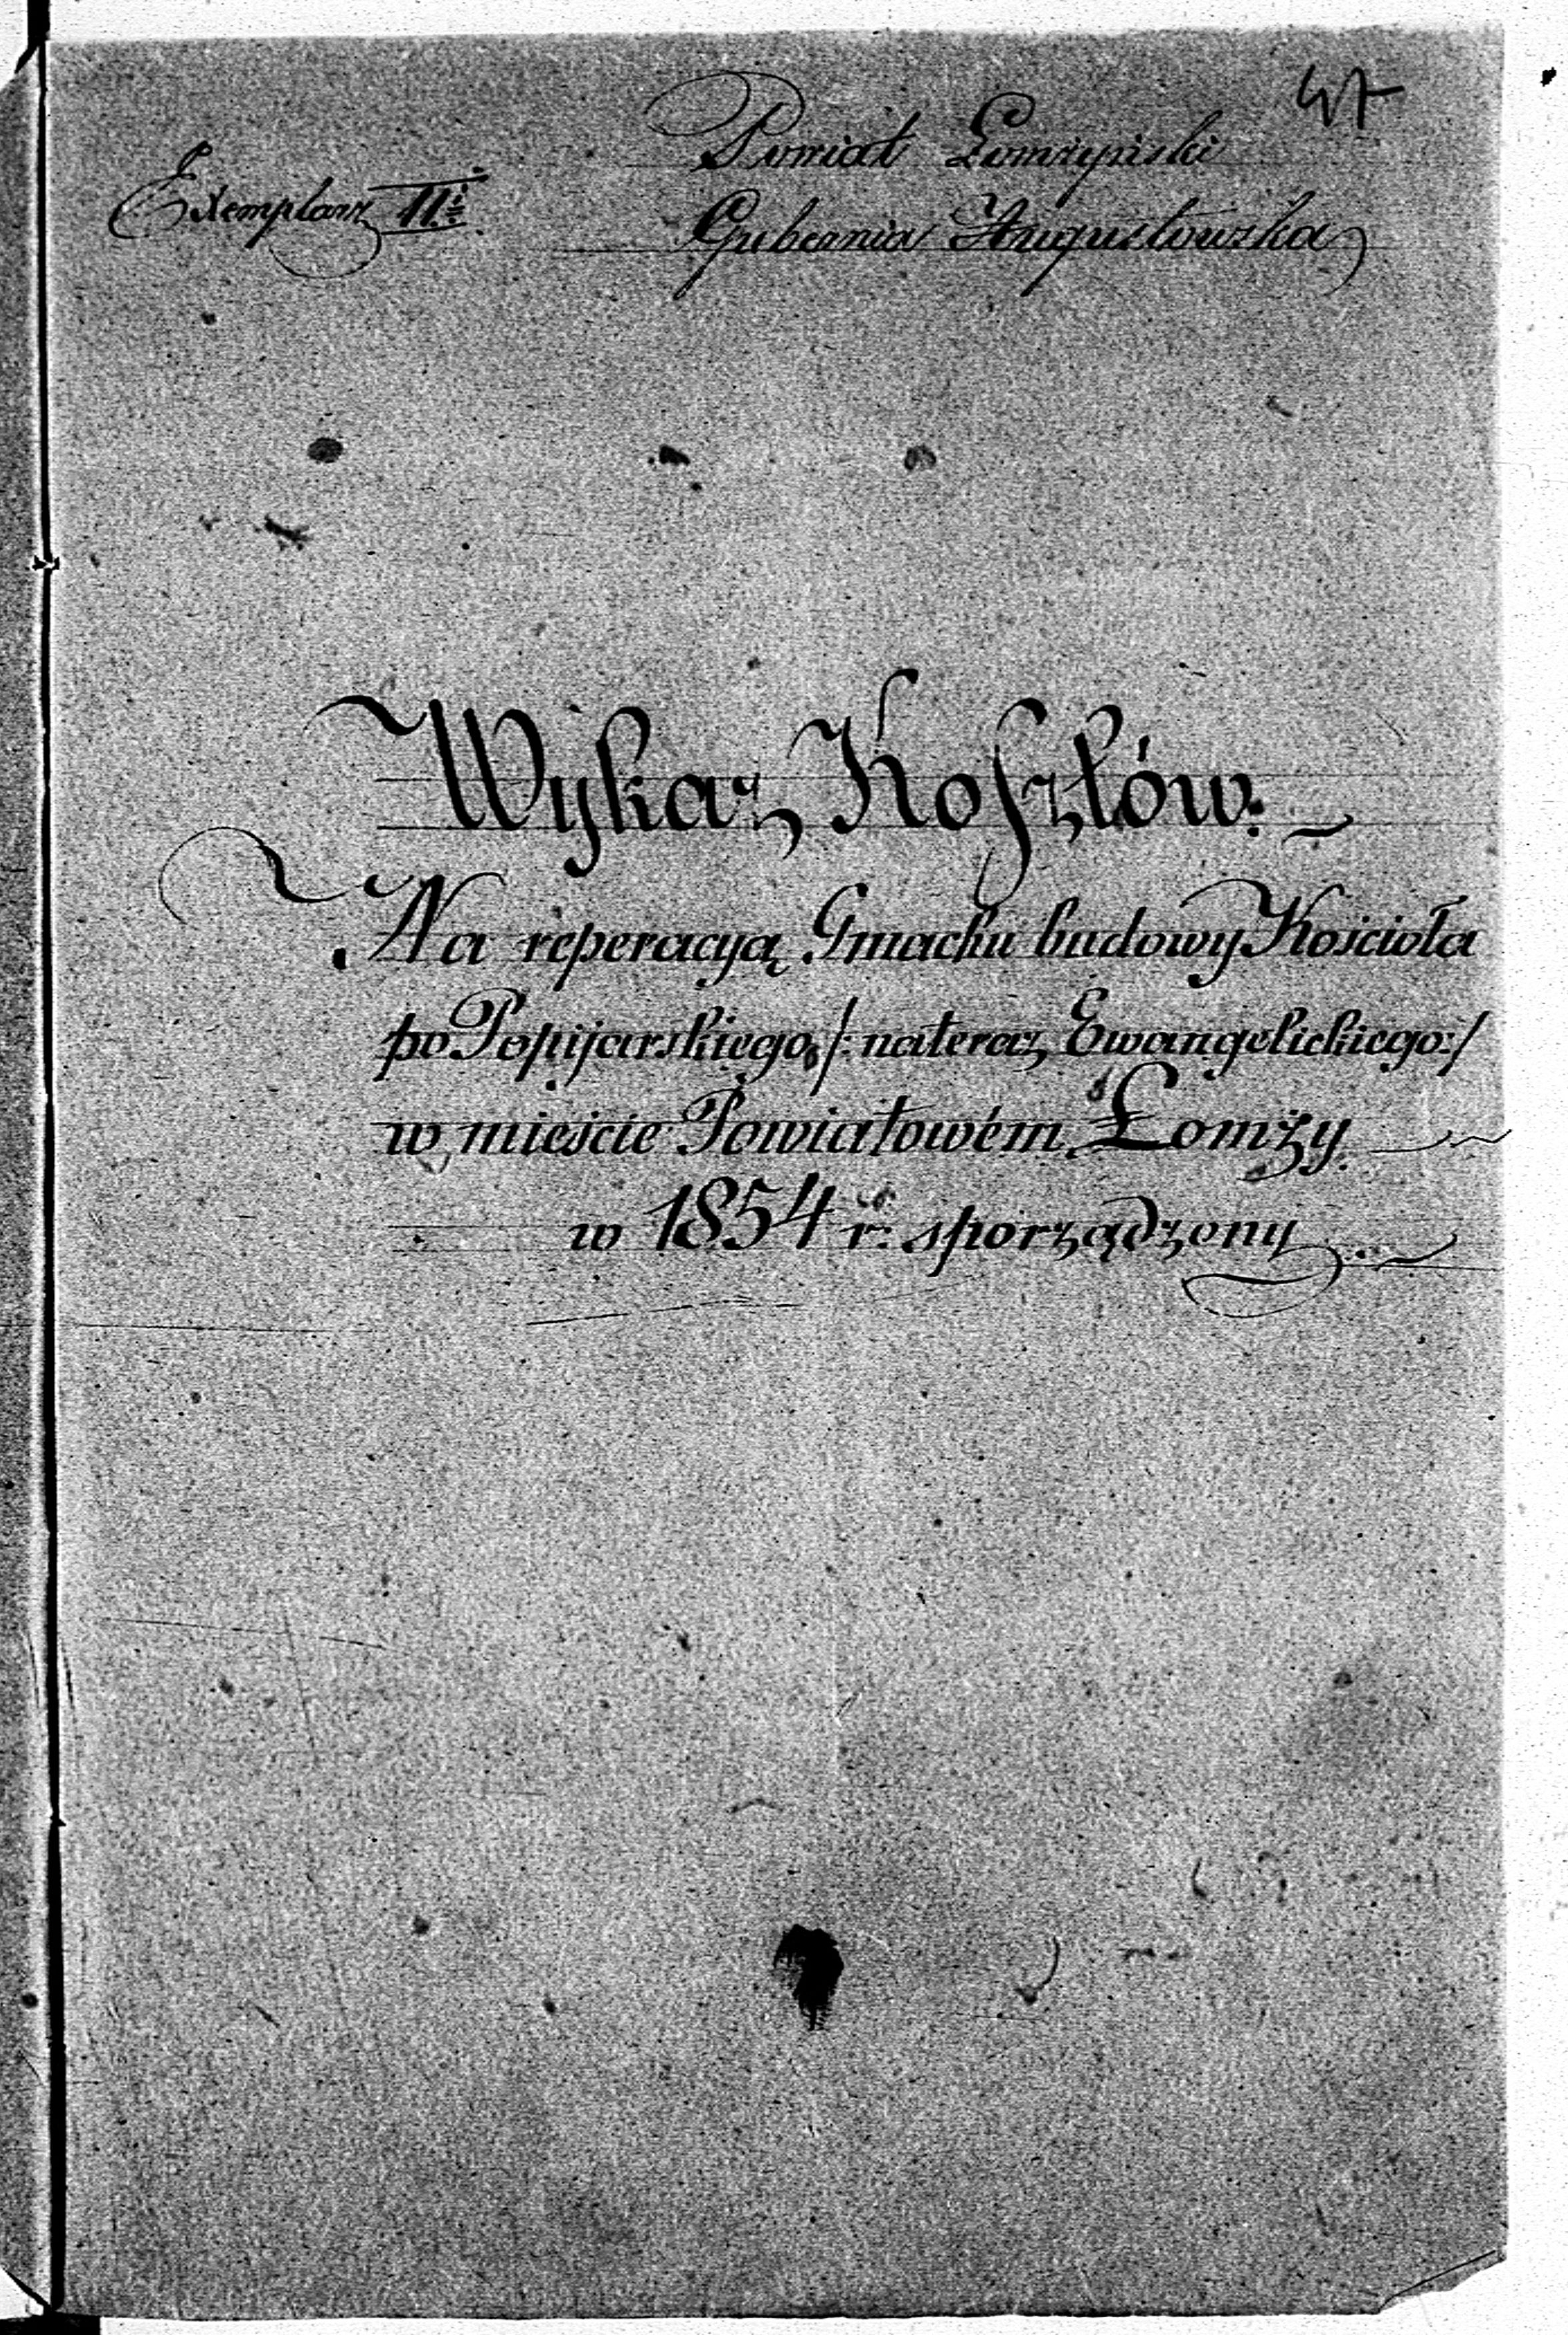 47
Powiat Łomżyński
Exemplarz II.i
Gubernia Augustowska
Wykaz Kosztów.
Na reperacyą Gmachu budowy Kościoła
po Popijarskiego /: nateraz Ewangelickiego :/
w mieście Powiatowém Łomży.
w 1854 r: sporządzony.